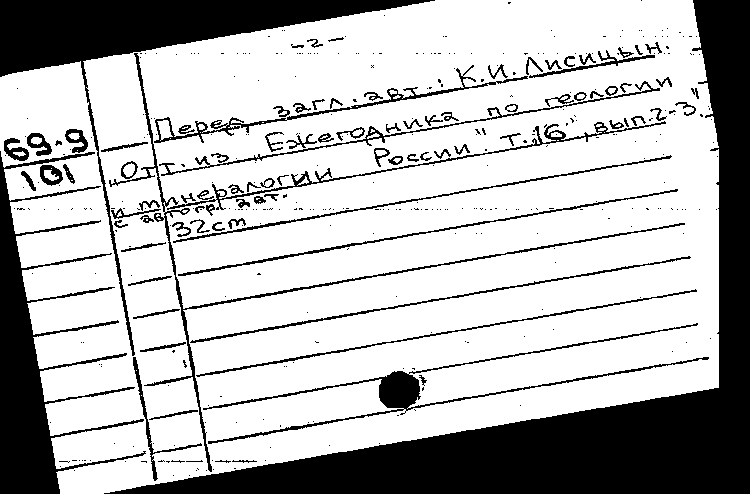 - 2 -
Перед загл. авт.: К.И. Лисицын.
69.9
101
„Отт. из „Ежегодника по геологии
и минералогии России". т. „16", вып. 2-3".
с автогр. авт.
32cm